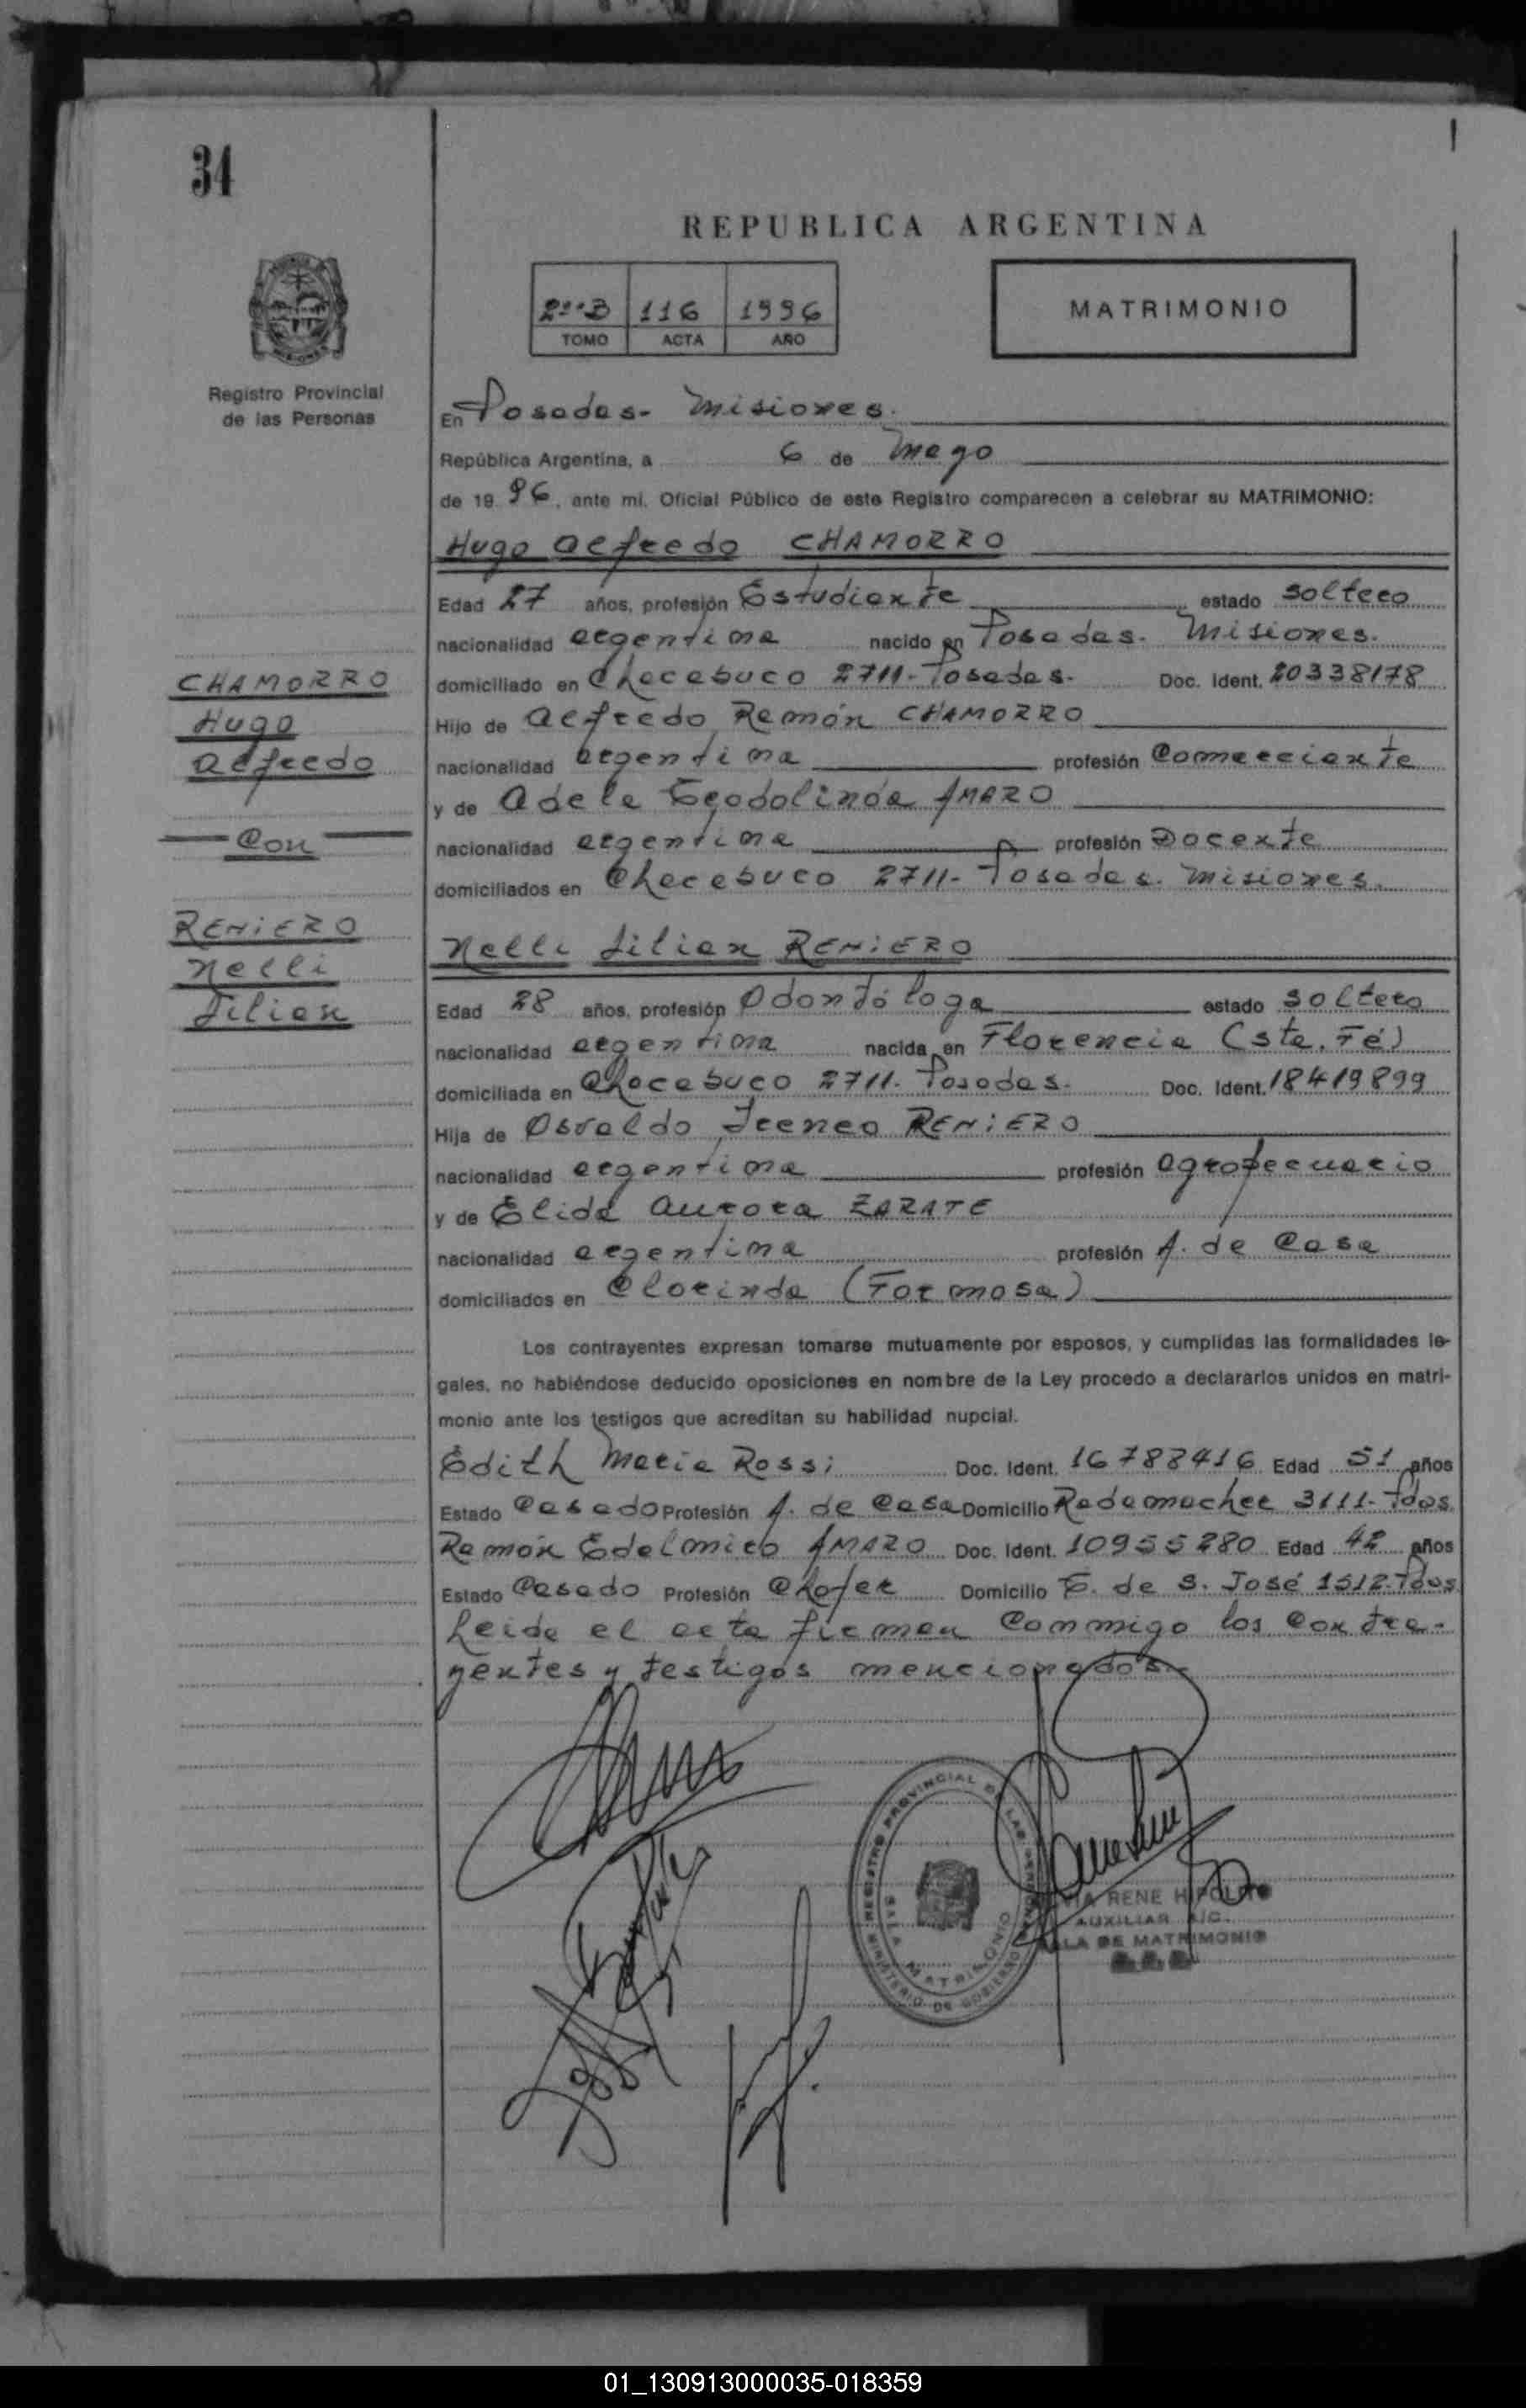 34
REPUBLICA ARGENTINA
2º"B 116 1996
TOMO ACTA AÑO
MATRIMONIO
Registro Provincial
de las Personas
En Posadas- Misiones.
República Argentina, a 6 de Mayo
de 1996, ante mi, Oficial Público de este Registro comparecen a celebrar su MATRIMONIO:
Hugo Alfredo CHAMORRO
Edad 27 años, profesión Estudiante estado soltero
nacionalidad argentina nacido en Posadas. Misiones.
domiciliado en Chacabuco 2711-Posadas. Doc. Ident. 20338178
Hijo de Alfredo Ramón CHAMORRO
nacionalidad argentina profesión Comerciante
y de Adela Teodolinda AMARO
nacionalidad argentina profesión Docente
domiciliados en Chacabuco 2711- Posadas. Misiones.
CHAMORRO
Hugo
Alfredo
Con
RENiERO
Nelli
Lilian
Nelli Lilian RENiERO
Edad 28 años, profesión Odontóloga estado soltera
nacionalidad argentina nacida en Florencia (Sta. Fé)
domiciliada en Chacabuco 2711. Posadas. Doc. Ident. 18419899
Hija de Osvaldo Ireneo RENiERO
nacionalidad argentina profesión agropecuario
y de Elida Aurora ZARATE
nacionalidad argentina profesión A. de Casa
domiciliados en Clorinda (Formosa)
Los contrayentes expresan tomarse mutuamente por esposos, y cumplidas las formalidades le-
gales, no habiéndose deducido oposiciones en nombre de la Ley procedo a declararlos unidos en matri-
monio ante los testigos que acreditan su habilidad nupcial.
Edith Maria Rossi Doc. Ident. 16788416 Edad 51 años
Estado Casado Profesión A. de Casa Domicilio Rademacher 3111-Pdas.
Ramón Edelmiro AMARO Doc. Ident. 10955280 Edad 42 años
Estado Casado Profesión Chofer Domicilio C. de S. José 1512-Pdas
Leida el acta firman Conmigo los Contra-
yentes y testigos mencionados.-
REGISTRO PROVINCIAL DE LAS
SALA MATRIMONIO
MINISTERIO DE GOBIERNO
RENE HIPOLITO
AUXILIAR A/C.
SALA DE MATRIMONIO
01_130913000035-018359